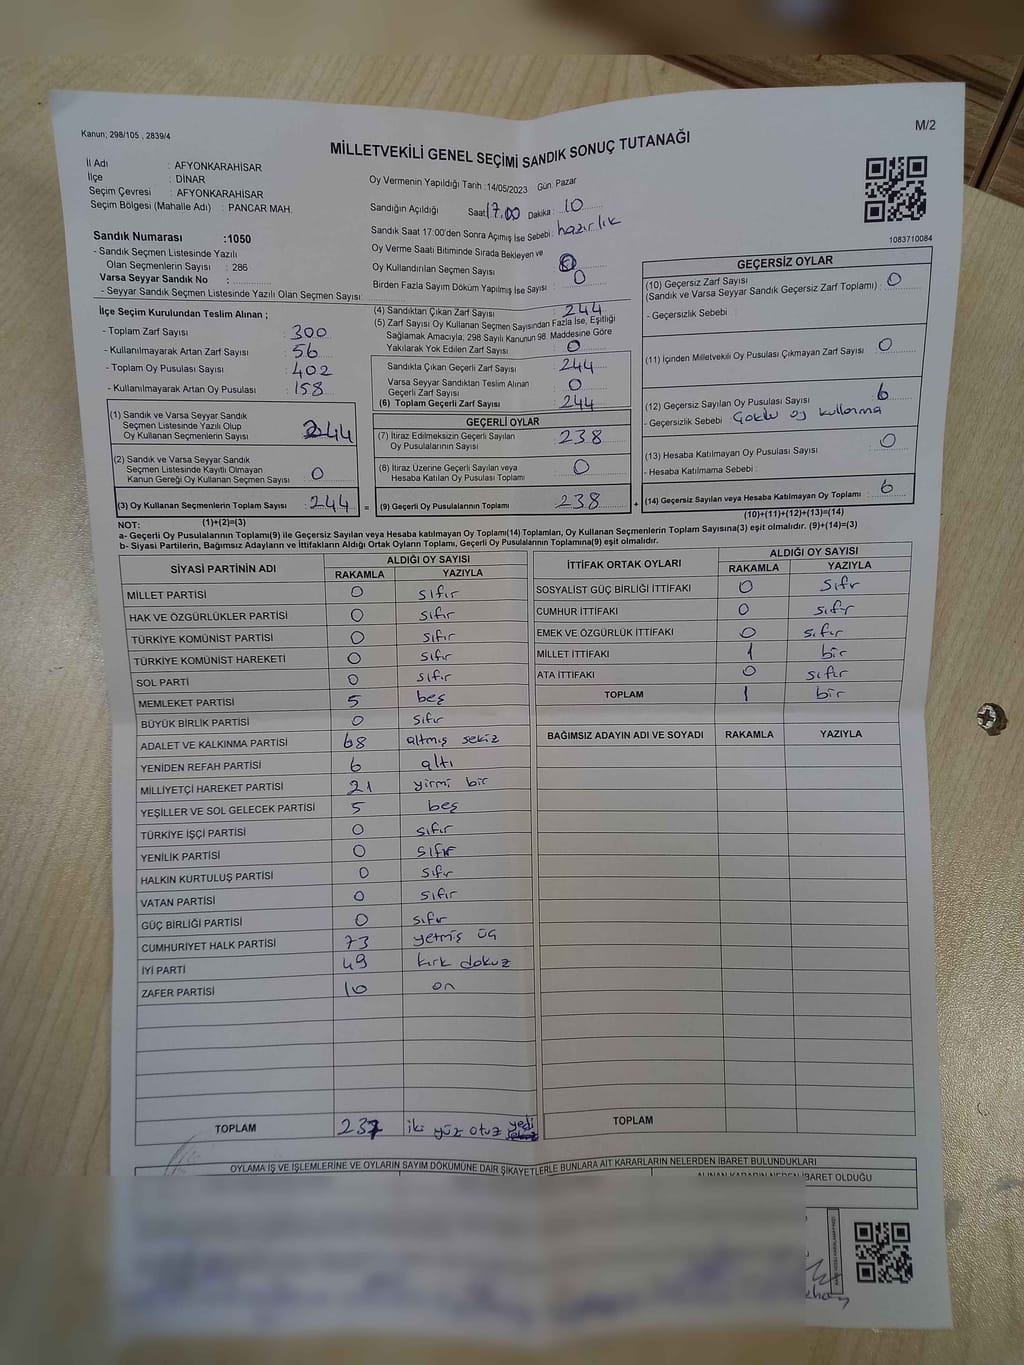 Kanun; 298/105 , 2839/4
M/2
MİLLETVEKİLİ GENEL SEÇİMİ SANDIK SONUÇ TUTANAĞI
İl Adı : AFYONKARAHİSAR
İlçe : DİNAR
Seçim Çevresi : AFYONKARAHİSAR
Seçim Bölgesi (Mahalle Adı) : PANCAR MAH.
Sandık Numarası :1050
- Sandık Seçmen Listesinde Yazılı
Olan Seçmenlerin Sayısı : 286
Varsa Seyyar Sandık No :
- Seyyar Sandık Seçmen Listesinde Yazılı Olan Seçmen Sayısı
Oy Vermenin Yapıldığı Tarih :14/05/2023 Gün: Pazar
Sandığın Açıldığı Saat 17.00 Dakika: 10
Sandık Saat 17:00'den Sonra Açımış İse Sebebi: hazırlık
Oy Verme Saati Bitiminde Sırada Bekleyen ve
Oy Kullandırılan Seçmen Sayısı 0
Birden Fazla Sayım Döküm Yapılmış İse Sayısı : 0
1083710084
İlçe Seçim Kurulundan Teslim Alınan ;
- Toplam Zarf Sayısı : 300
- Kullanılmayarak Artan Zarf Sayısı : 56
- Toplam Oy Pusulası Sayısı : 402
- Kullanılmayarak Artan Oy Pusulası : 158
(1) Sandık ve Varsa Seyyar Sandık
Seçmen Listesinde Yazılı Olup
Oy Kullanan Seçmenlerin Sayısı 244
(2) Sandık ve Varsa Seyyar Sandık
Seçmen Listesinde Kayıtlı Olmayan
Kanun Gereği Oy Kullanan Seçmen Sayısı : 0
(3) Oy Kullanan Seçmenlerin Toplam Sayısı : 244
(1)+(2)=(3)
(4) Sandıktan Çıkan Zarf Sayısı : 244
(5) Zarf Sayısı Oy Kullanan Seçmen Sayısından Fazla İse, Eşitliği
Sağlamak Amacıyla; 298 Sayılı Kanunun 98. Maddesine Göre
Yakılarak Yok Edilen Zarf Sayısı : 0
Sandıkta Çıkan Geçerli Zarf Sayısı : 244
Varsa Seyyar Sandıktan Teslim Alınan
Geçerli Zarf Sayısı : 0
(6) Toplam Geçerli Zarf Sayısı : 244
GEÇERLİ OYLAR
(7) İtiraz Edilmeksizin Geçerli Sayılan
Oy Pusulalarının Sayısı : 238
(8) İtiraz Üzerine Geçerli Sayılan veya
Hesaba Katılan Oy Pusulası Toplamı : 0
= (9) Geçerli Oy Pusulalarının Toplamı : 238 +
GEÇERSİZ OYLAR
(10) Geçersiz Zarf Sayısı
(Sandık ve Varsa Seyyar Sandık Geçersiz Zarf Toplamı) : 0
- Geçersizlik Sebebi :
(11) İçinden Milletvekili Oy Pusulası Çıkmayan Zarf Sayısı : 0
(12) Geçersiz Sayılan Oy Pusulası Sayısı : 6
- Geçersizlik Sebebi : Çoklu oy kullanma
(13) Hesaba Katılmayan Oy Pusulası Sayısı : 0
- Hesaba Katılmama Sebebi :
(14) Geçersiz Sayılan veya Hesaba Katılmayan Oy Toplamı : 6
(10)+(11)+(12)+(13)=(14)
NOT:
a- Geçerli Oy Pusulalarının Toplamı(9) ile Geçersiz Sayılan veya Hesaba katılmayan Oy Toplamı(14) Toplamları, Oy Kullanan Seçmenlerin Toplam Sayısına(3) eşit olmalıdır. (9)+(14)=(3)
b- Siyasi Partilerin, Bağımsız Adayların ve İttifakların Aldığı Ortak Oyların Toplamı, Geçerli Oy Pusulalarının Toplamına(9) eşit olmalıdır.
SİYASİ PARTİNİN ADI ALDIĞI OY SAYISI
RAKAMLA YAZIYLA
MİLLET PARTİSİ 0 sıfır
HAK VE ÖZGÜRLÜKLER PARTİSİ 0 sıfır
TÜRKİYE KOMÜNİST PARTİSİ 0 sıfır
TÜRKİYE KOMÜNİST HAREKETİ 0 sıfır
SOL PARTİ 0 sıfır
MEMLEKET PARTİSİ 5 beş
BÜYÜK BİRLİK PARTİSİ 0 sıfır
ADALET VE KALKINMA PARTİSİ 68 altmış sekiz
YENİDEN REFAH PARTİSİ 6 altı
MİLLİYETÇİ HAREKET PARTİSİ 21 yirmi bir
YEŞİLLER VE SOL GELECEK PARTİSİ 5 beş
TÜRKİYE İŞÇİ PARTİSİ 0 sıfır
YENİLİK PARTİSİ 0 sıfır
HALKIN KURTULUŞ PARTİSİ 0 sıfır
VATAN PARTİSİ 0 sıfır
GÜÇ BİRLİĞİ PARTİSİ 0 sıfır
CUMHURİYET HALK PARTİSİ 73 yetmiş üç
İYİ PARTİ 49 kırk dokuz
ZAFER PARTİSİ 10 on
TOPLAM 237 iki yüz otuz yedi
İTTİFAK ORTAK OYLARI ALDIĞI OY SAYISI
RAKAMLA YAZIYLA
SOSYALİST GÜÇ BİRLİĞİ İTTİFAKI 0 sıfır
CUMHUR İTTİFAKI 0 sıfır
EMEK VE ÖZGÜRLÜK İTTİFAKI 0 sıfır
MİLLET İTTİFAKI 1 bir
ATA İTTİFAKI 0 sıfır
TOPLAM 1 bir
BAĞIMSIZ ADAYIN ADI VE SOYADI RAKAMLA YAZIYLA
TOPLAM
OYLAMA İŞ VE İŞLEMLERİNE VE OYLARIN SAYIM DÖKÜMÜNE DAİR ŞİKAYETLERLE BUNLARA AİT KARARLARIN NELERDEN İBARET BULUNDUKLARI
ALINAN KARARIN NEDEN İBARET OLDUĞU